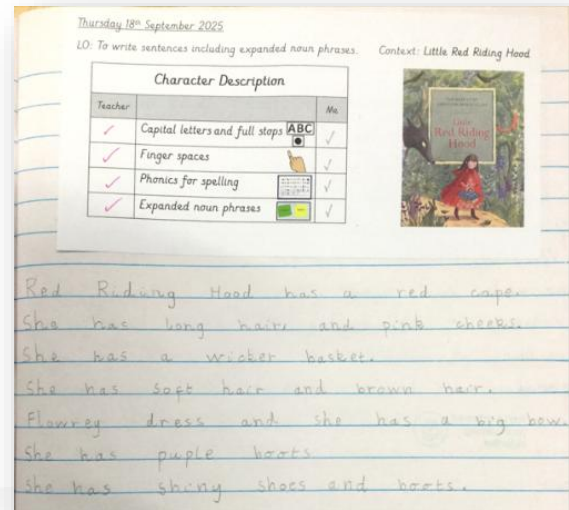 Thursday 18th September 2025
LO: To write sentences including expanded noun phrases. Context: Little Red Riding Hood
Character Description
Teacher Me
Capital letters and full stops ABC
Finger spaces
Phonics for spelling
Expanded noun phrases
Little
Red Riding
Hood
Red Riding Hood has a red cape.
She has long hair, and pink cheeks.
She has a wicker basket.
She has soft hair and brown hair.
Flowrey dress and she has a big bow.
She has puple boots
She has shiny shoes and boots.